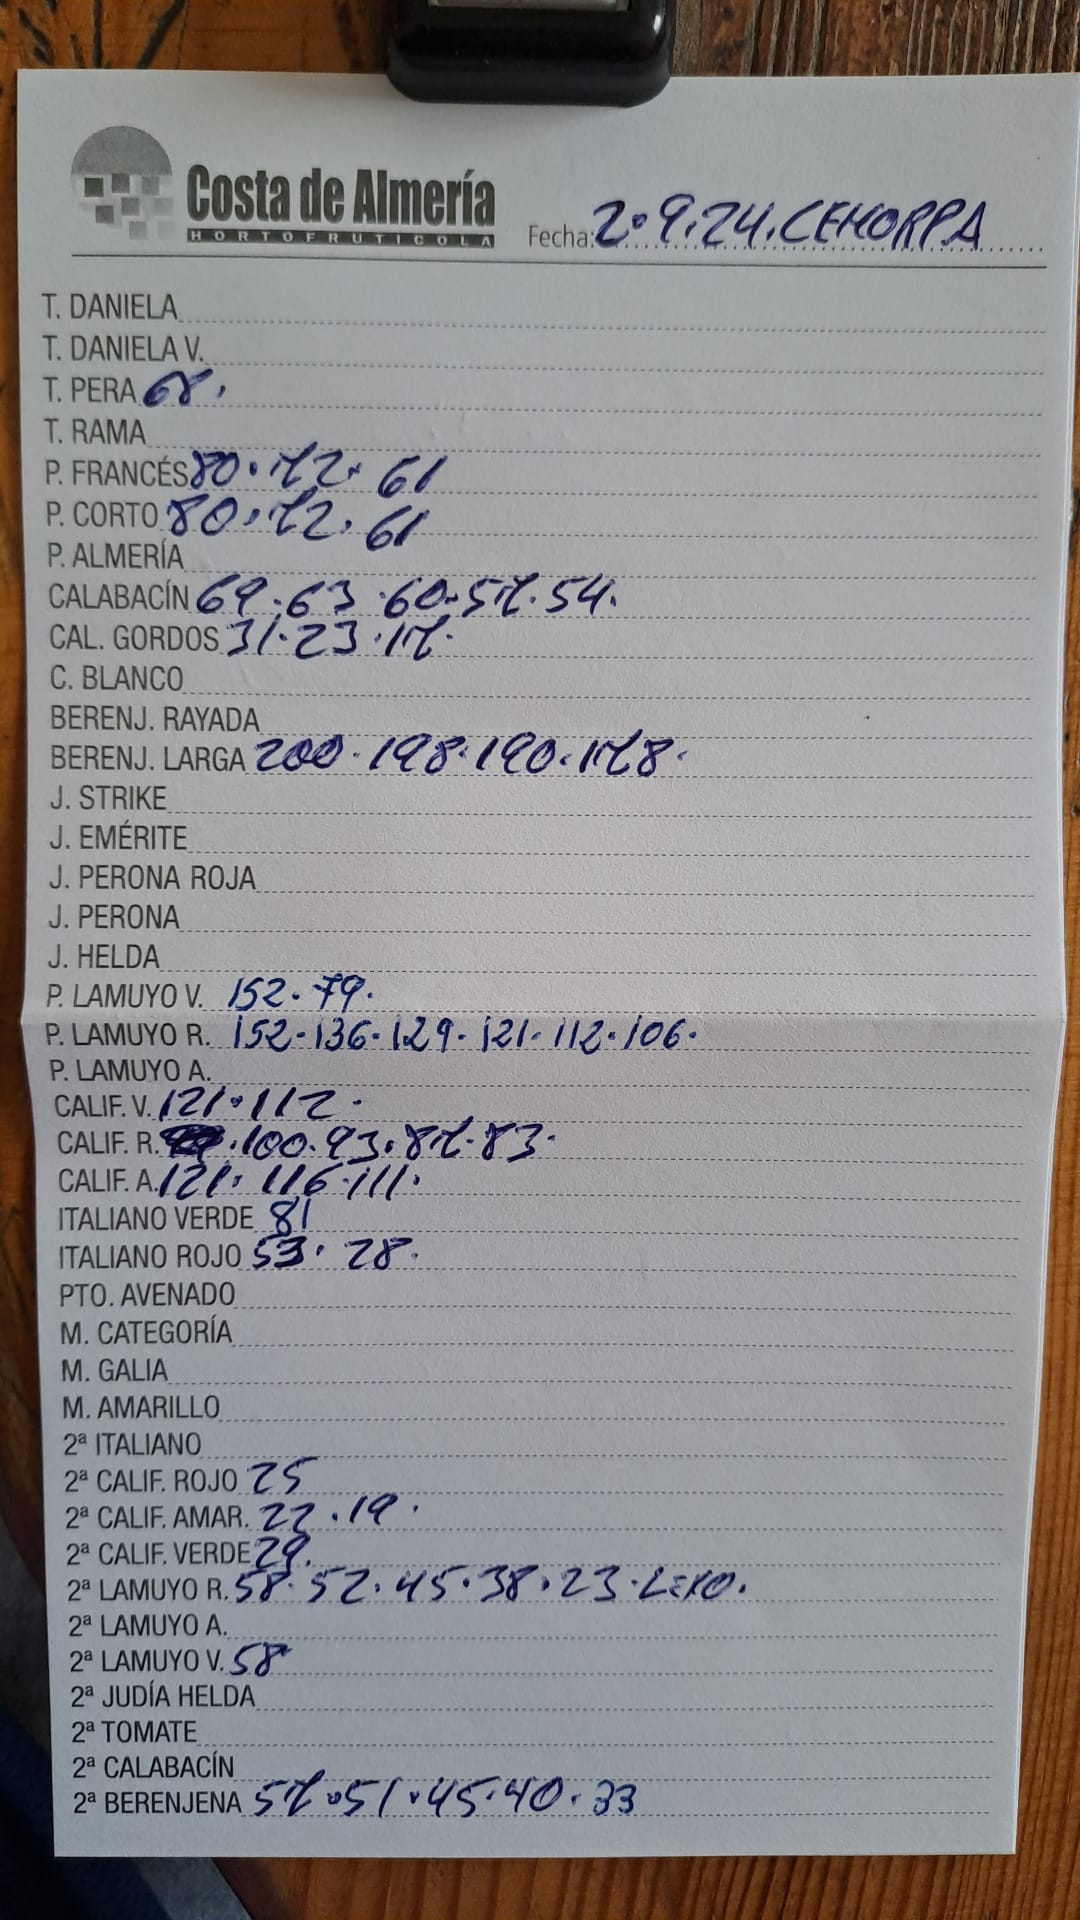 Costa de Almería
HORTOFRUTICOLA
Fecha: 2.9.24. CEHORPA
T. DANIELA
T. DANIELA V.
T. PERA 68.
T. RAMA
P. FRANCÉS 80. 72. 61
P. CORTO 80. 72. 61
P. ALMERÍA
CALABACÍN 69. 63. 60. 57. 54.
CAL. GORDOS 31. 23. 17.
C. BLANCO
BERENJ. RAYADA
BERENJ. LARGA 200. 198. 190. 178.
J. STRIKE
J. EMÉRITE
J. PERONA ROJA
J. PERONA
J. HELDA
P. LAMUYO V. 152. 79.
P. LAMUYO R. 152. 136. 129. 121. 112. 106.
P. LAMUYO A.
CALIF. V. 121. 112.
CALIF. R. . 100. 93. 87. 83.
CALIF. A. 121. 116. 111.
ITALIANO VERDE 81
ITALIANO ROJO 53. 28.
PTO. AVENADO
M. CATEGORÍA
M. GALIA
M. AMARILLO
2ª ITALIANO
2ª CALIF. ROJO 25
2ª CALIF. AMAR. 22. 19.
2ª CALIF. VERDE 29.
2ª LAMUYO R. 58. 52. 45. 38. 23.
2ª LAMUYO A.
2ª LAMUYO V. 58
2ª JUDÍA HELDA
2ª TOMATE
2ª CALABACÍN
2ª BERENJENA 57. 51. 45. 40. 33